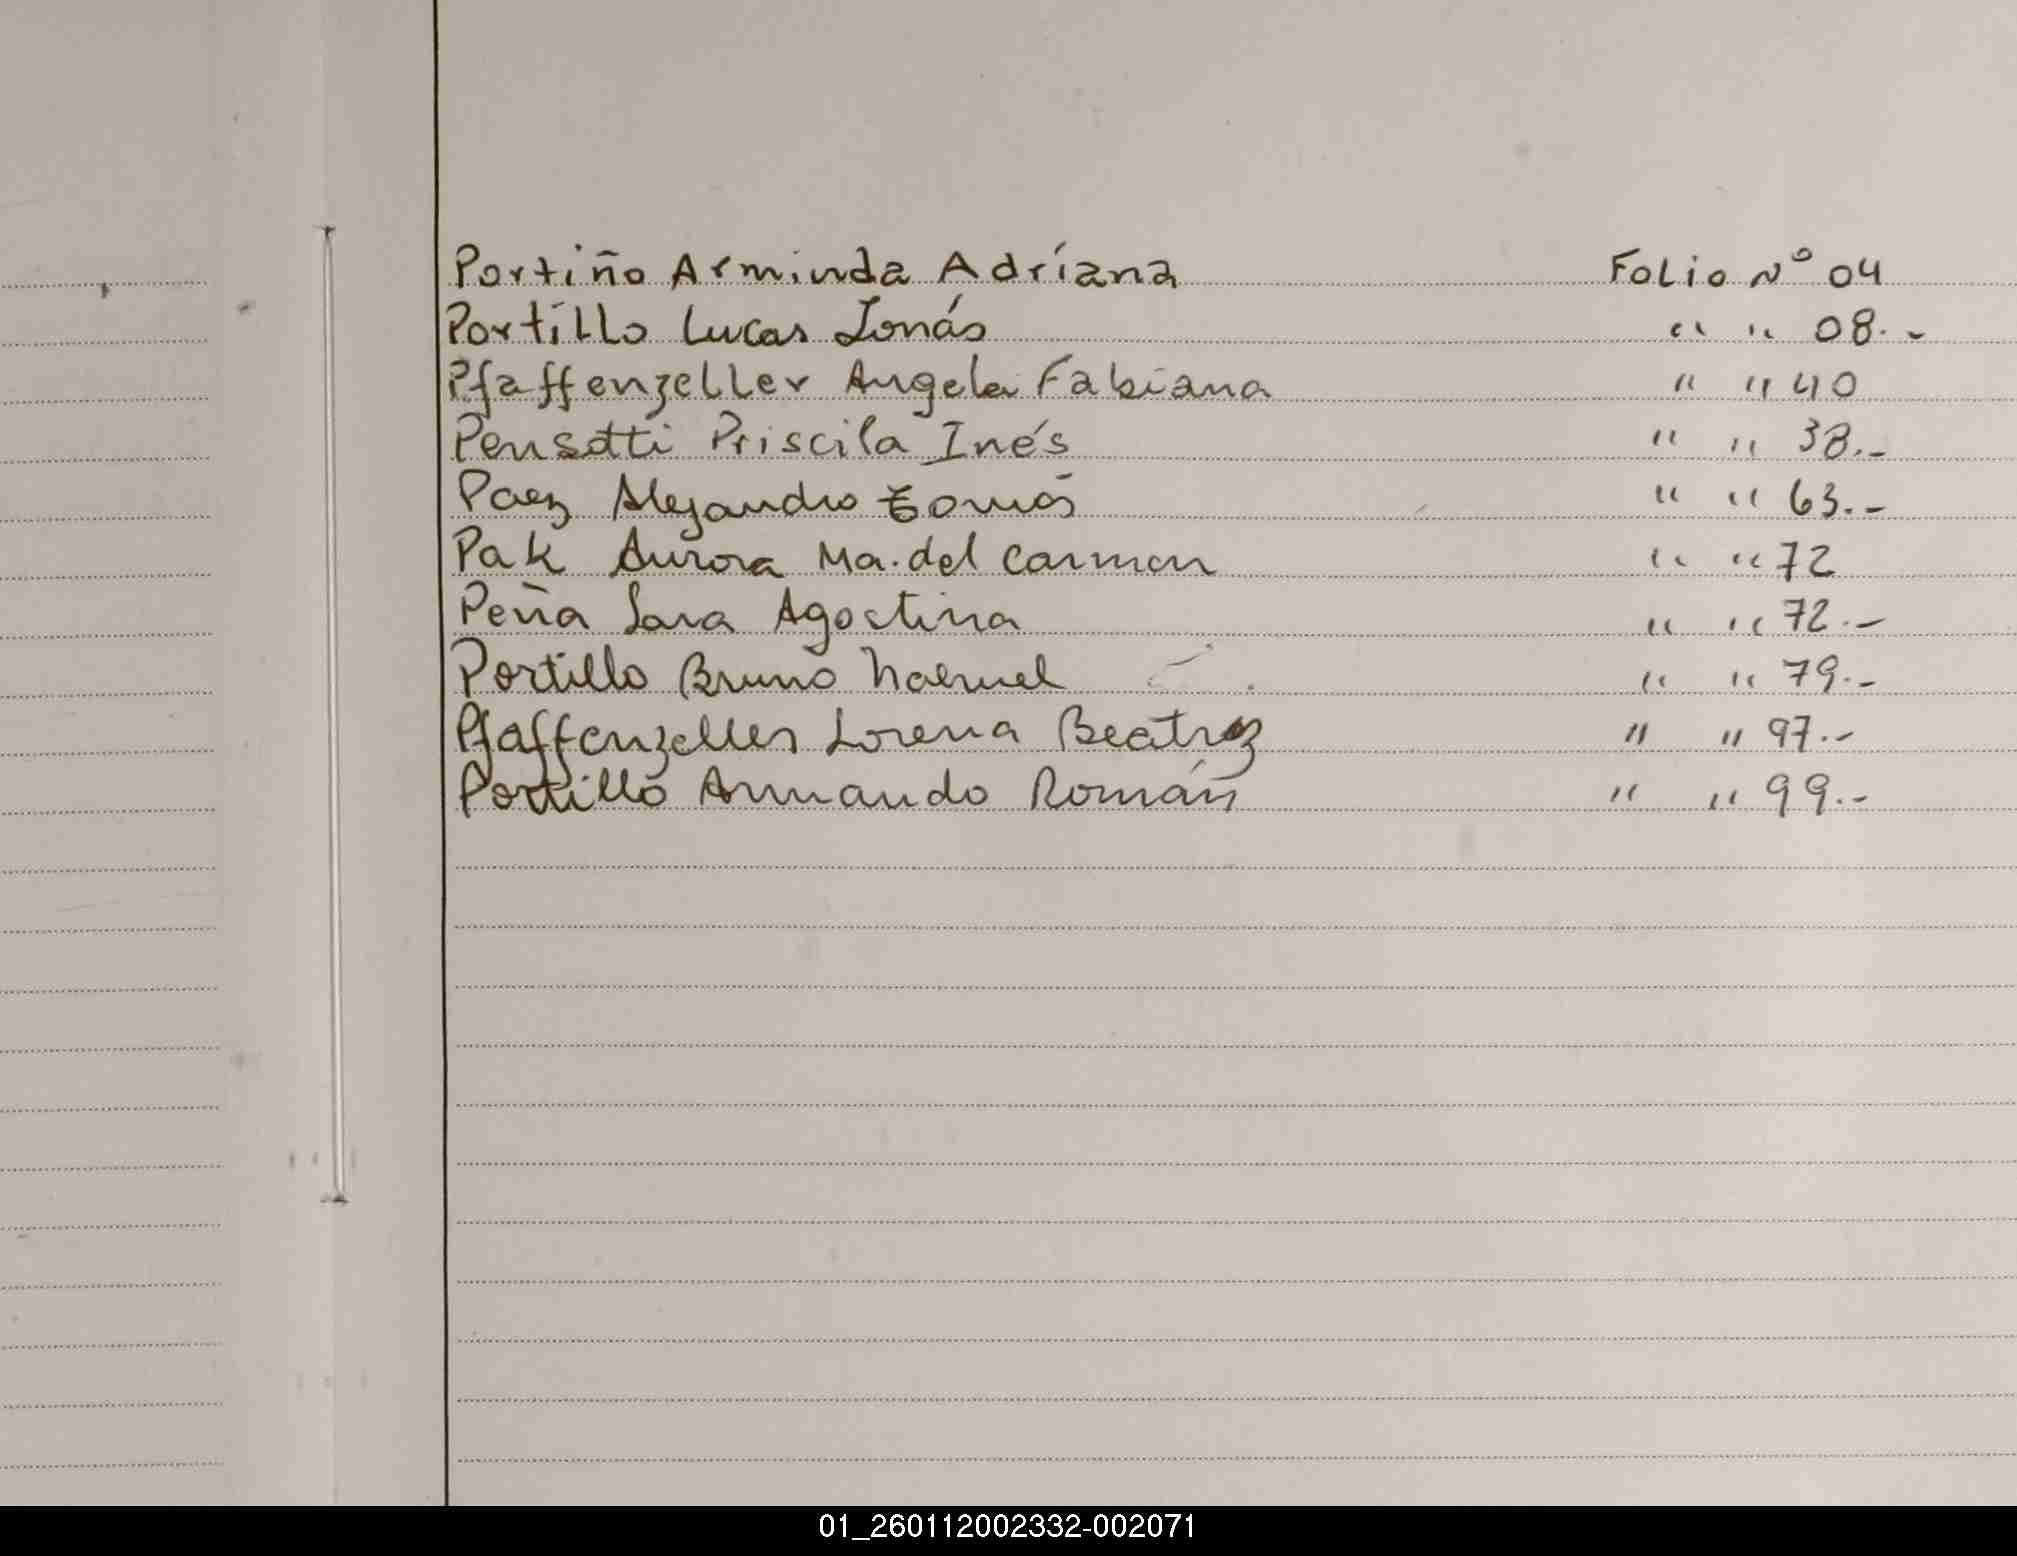 Portiño Arminda Adríana Folio Nº 04
Portíllo Lucas Jonás " " 08.-
Pfaffenzeller Angela Fabiana " " 40
Pensotti Priscila Inés " " 38.-
Paez Alejandro Tomás " " 63.-
Pak Aurora Ma. del Carmen " " 72
Peña Sara Agostina " " 72.-
Portillo Bruno Nahuel " " 79.-
Pfaffenzeller Lorena Beatriz " " 97.-
Portillo Armando Román " " 99.-
01_260112002332-002071